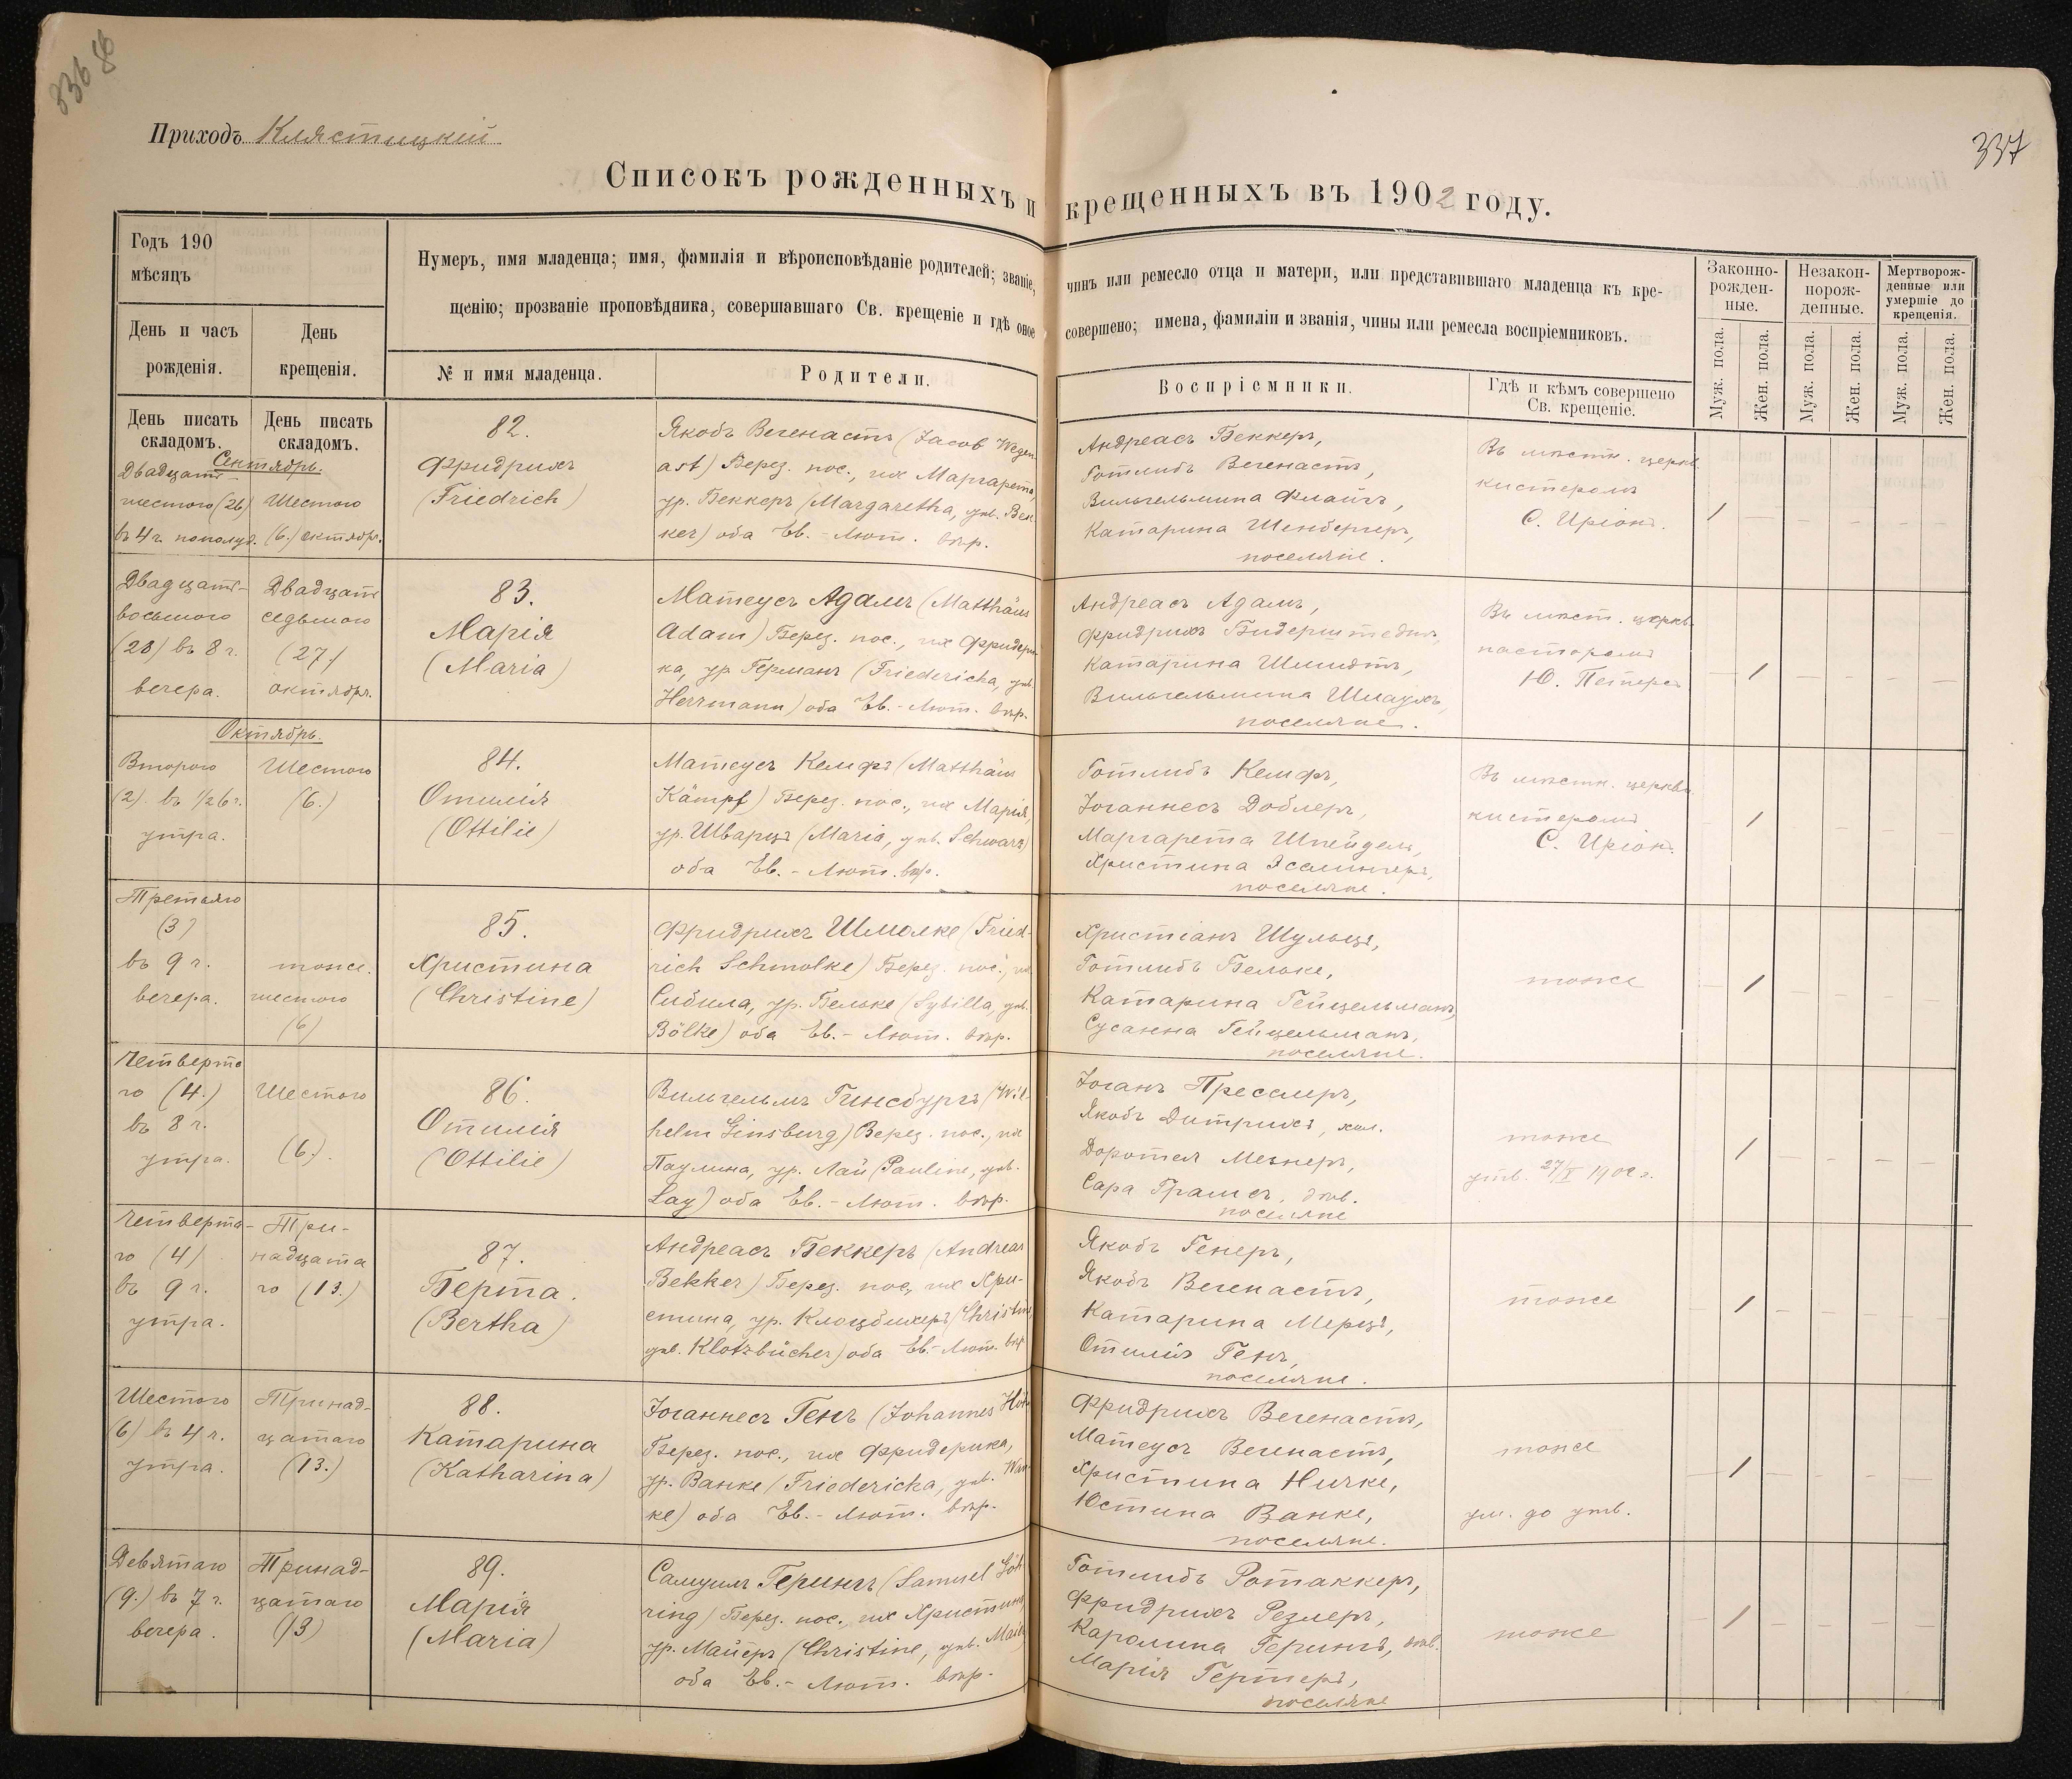 336 об
337
Приходъ Клястицкій
Списокъ рожденныхъ и крещенныхъ въ 1902 году.
Годъ 190
мѣсяцъ
День и часъ
рожденія.
День
крещенія.
Нумеръ, имя младенца; имя, фамилія и вѣроисповѣданіе родителей; званіе, чинъ или ремесло отца и матери, или представившаго младенца къ кре-
щенію; прозваніе проповѣдника, совершавшаго Св. крещеніе и гдѣ оное совершено; имена, фамиліи и званія, чины или ремесла воспріемниковъ.
№ и имя младенца.
Родители.
Воспріемники.
Гдѣ и кѣмъ совершено
Св. крещеніе.
Законно-
рожден-
ные.
Незакон-
норож-
денные.
Мертворож-
денные или
умершіе до
крещенія.
Муж. пола.
Жен. пола.
Муж. пола.
Жен. пола.
Муж. пола.
Жен. пола.
День писать
складомъ.
День писать
складомъ.
Сентябрь.
Двадцать
шестого (26)
въ 4 ч. пополуд.
Шестого
(6.) октября.
82.
Фридрихъ
(Friedrich)
Якобъ Вегенастъ (Jacob Wegen-
ast) Берез. пос., их Маргарета,
ур. Беккеръ (Margaretha, ув. Bek-
ker) оба Ев.-Лют. вѣр.
Андреасъ Беккеръ,
Готлибъ Вегенастъ,
Вильгельмина Флайгъ,
Катарина Шенбергеръ,
поселяне.
Въ мѣстн. церкв.
кистеромъ
С. Иріонъ.
1
Двадцать-
восьмого
(28) въ 8 ч.
вечера.
Двадцать
седьмого
(27)
октября.
83.
Марія
(Maria)
Матеусъ Адамъ (Matthäus
Adam) Берез. пос., их Фридери-
ка, ур Германъ (Friedericha, ув.
Herrmann) оба Ев.-Лют. вѣр.
Андреасъ Адамъ,
Фридрихъ Бидерштедтъ,
Катарина Шмидтъ,
Вильгельмина Шлаухъ,
поселяне.
Въ мѣст. церкв.
пасторомъ
Ю. Петерсъ
1
Октябрь.
Второго
(2). въ 1/2 6 ч.
утра.
Шестого
(6.)
84.
Отилія
(Ottilie)
Матеусъ Кемфъ (Matthäus
Kämpf) Берез. пос., их Марія,
ур. Шварцъ (Maria, ув. Schwarz)
оба Ев.-Лют. вѣр.
Готлибъ Кемфъ,
Іоганнесъ Доблеръ,
Маргарета Шпейдель,
Христина Эсслингеръ,
поселяне.
Въ мѣстн. церкви
кистеромъ
С. Иріонъ.
1
Третьяго
(3)
въ 9 ч.
вечера.
тоже.
шестого
(6)
85.
Христина
(Christine)
Фридрихъ Шмолке (Fried-
rich Schmolke) Берез. пос., их
Сибила, ур. Бельке (Sybilla, ув.
Bölke) оба Ев.-Лют. вѣр.
Христіанъ Шульцъ,
Готлибъ Бельке,
Катарина Гейцельманъ,
Сусанна Гейцельманъ,
поселяне.
тоже
1
Четверта
го (4.)
въ 8 ч.
утра.
Шестого
(6.).
86.
Отилія
(Ottilie)
Вильгельмъ Гинсбургъ (Wil-
helm Ginsburg) Берез. пос., их
Паулина, ур. Лай (Pauline, ув.
Lay) оба Ев.-Лют. вѣр.
Іоганъ Пресслеръ,
Якобъ Дитрихъ, хол.
Доротея Мезнеръ,
Сара Грамсъ, дѣв.
поселяне
тоже
утв. 27/X 1902 г.
1
Четверта-
го (4)
въ 9 ч.
утра.
Три-
надцата
го (13.)
87.
Берта.
(Bertha)
Андреасъ Беккеръ (Andreas
Bekker) Берез. пос., их Хри-
стина, ур. Клоцбихеръ (Christine,
ув. Klotzbücher) оба Ев.-Лют. вѣр.
Якобъ Генеръ,
Якобъ Вегенастъ,
Катарина Мерцъ,
Отилія Генъ,
поселяне.
тоже
1
Шестого
(6) въ 4 ч.
утра.
Тринад-
цатаго
(13.)
88.
Катарина
(Katharina)
Іоганнесъ Генъ (Johannes Hön
Берез. пос., их Фридерика,
ур. Ванке (Friedericha, ув. Wan-
ke) оба Ев.-Лют. вѣр.
Фридрихъ Вегенастъ,
Матеусъ Вегенастъ,
Христина Ничке,
Юстина Ванке,
поселяне.
тоже
ум. до утв.
1
Девятаго
(9.) въ 7 ч.
вечера.
Тринад-
цатаго
(13)
89.
Марія
(Maria)
Самуилъ Герингъ (Samuel Göh-
ring) Берез. пос., их Христина,
ур. Майеръ (Christine, ув. Maier
оба Ев.-Лют. вѣр.
Готлибъ Ротаккеръ,
Фридрихъ Реzлеръ,
Каролина Герингъ, дѣв.
Марія Гертеръ,
поселяне
тоже
1